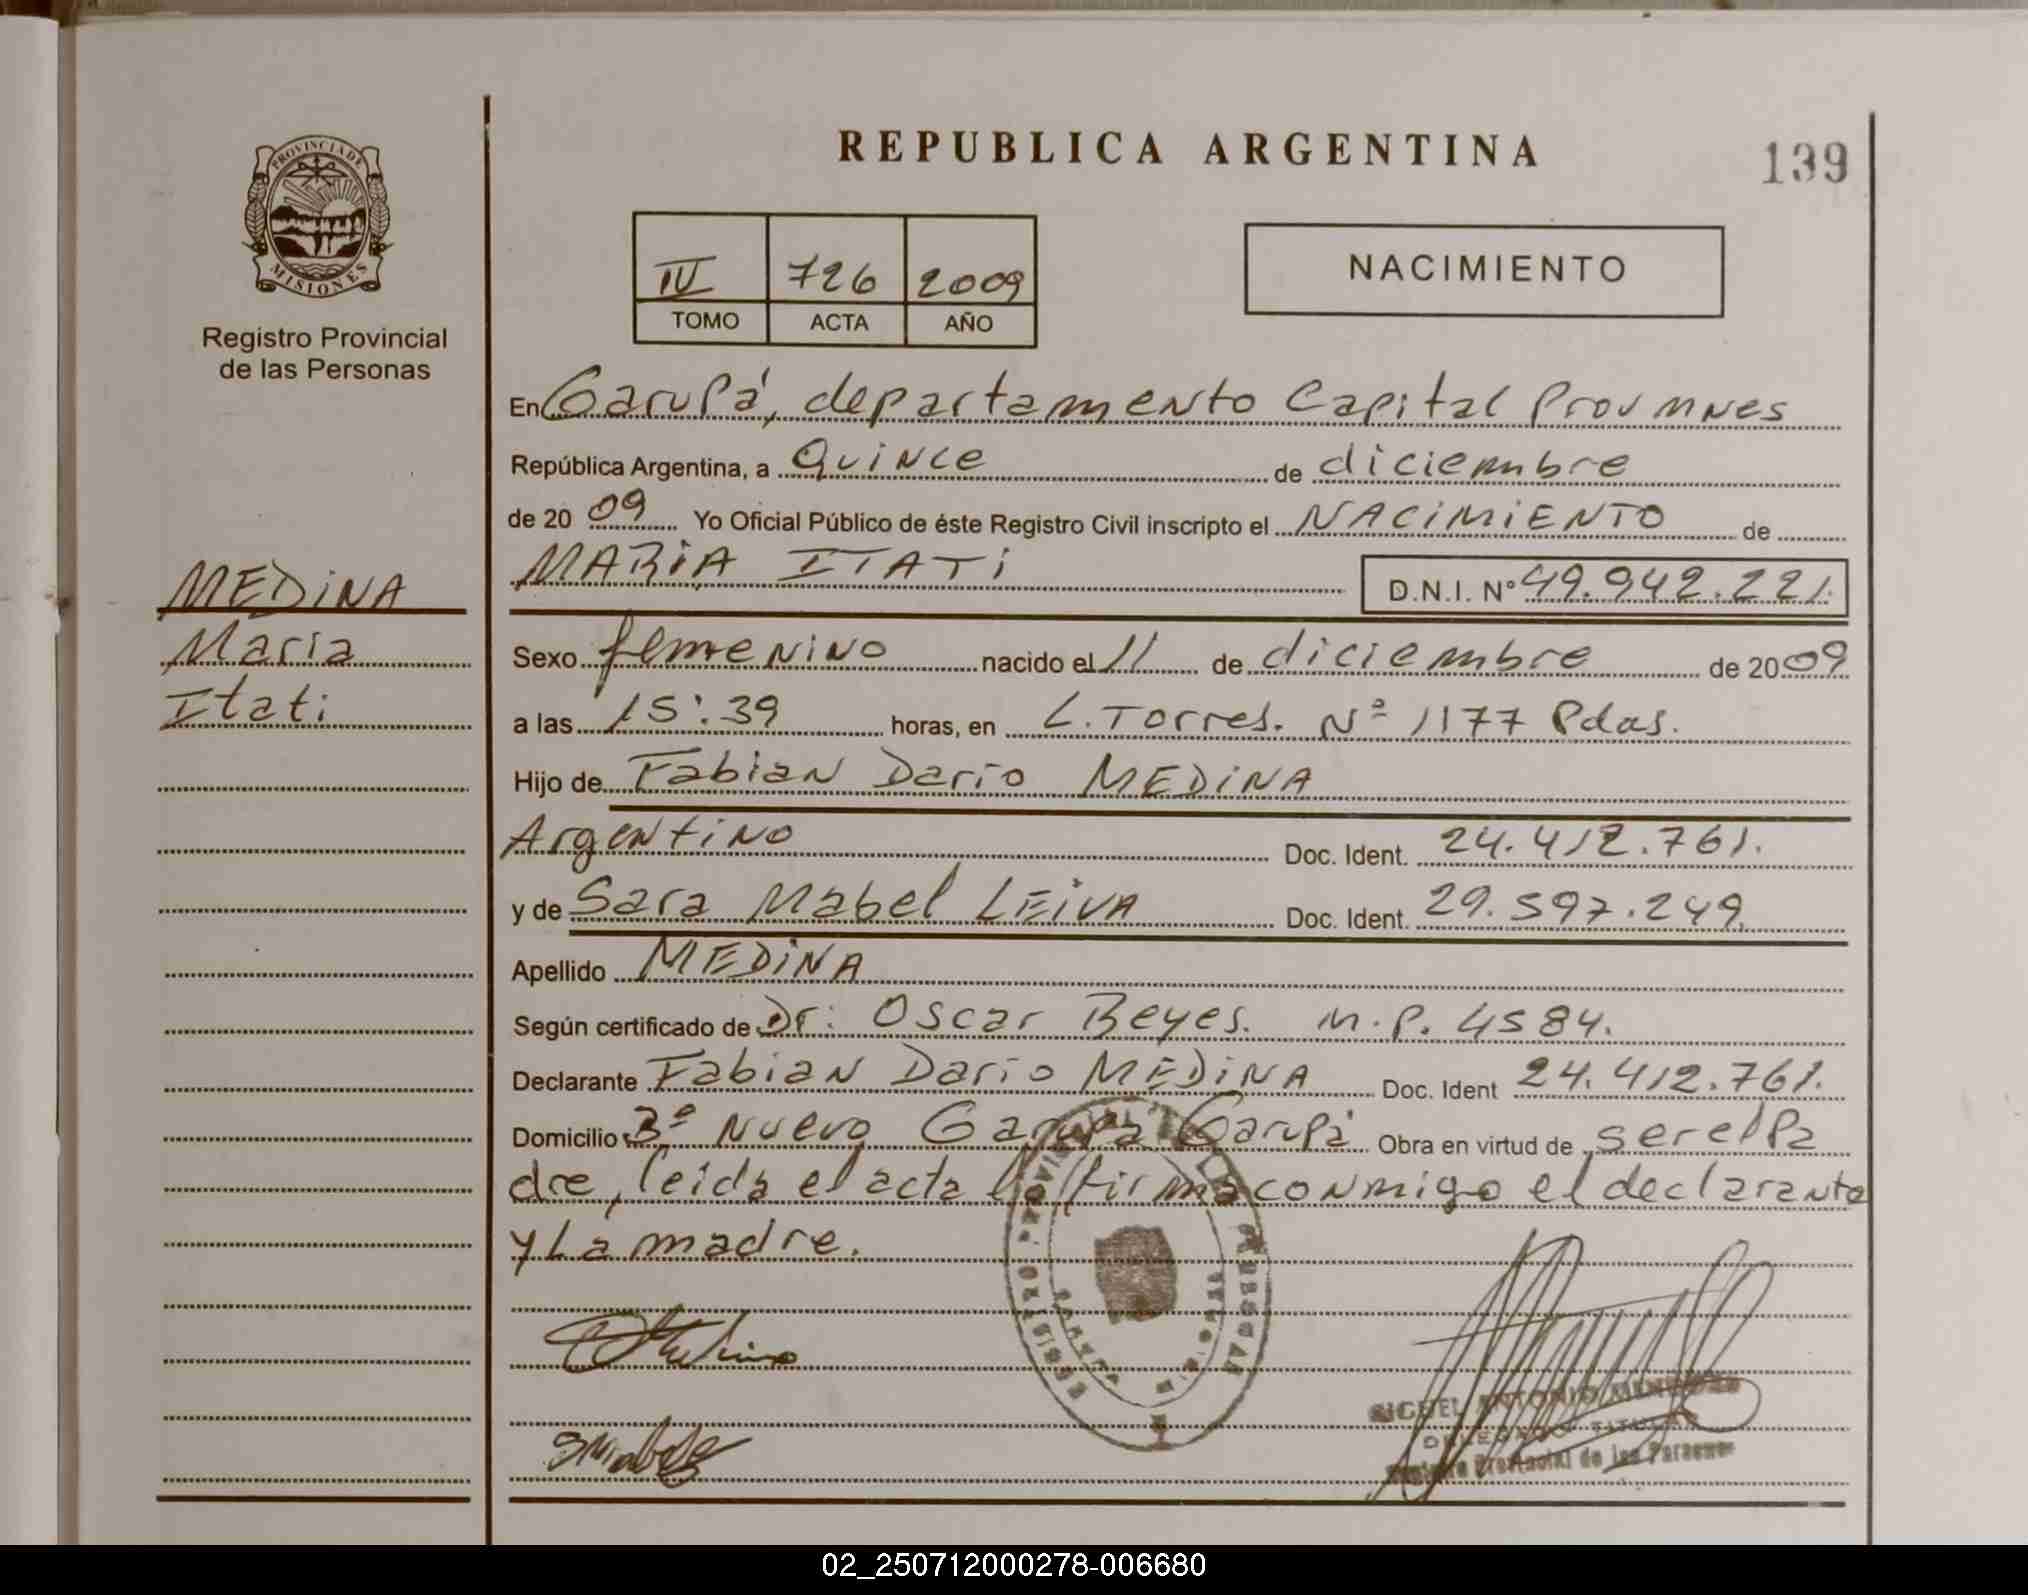 REPUBLICA ARGENTINA
139
PROVINCIA DE
MISIONES
Registro Provincial
de las Personas
IV 726 2009
TOMO ACTA AÑO
NACIMIENTO
En Garupá, departamento Capital Prov Mnes
República Argentina, a Quince de diciembre
de 20 09 Yo Oficial Público de éste Registro Civil inscripto el NACIMIENTO de
MARIA ITATI
D.N.I. Nº 49.942.221.
MEDINA
Maria
Itati
Sexo femenino nacido el 11 de diciembre de 20 09
a las 15:39 horas, en L. Torres. Nº 1177 Pdas.
Hijo de Fabian Dario MEDINA
Argentino Doc. Ident. 24.412.761.
y de Sara Mabel LEIVA Doc. Ident. 29.597.249.
Apellido MEDINA
Según certificado de Dr: Oscar Beyes. M.P. 4584.
Declarante Fabian Dario MEDINA Doc. Ident 24.412.761.
Domicilio Bº Nuevo Garupá Garupá Obra en virtud de ser el Pa
dre, leida el acta la firma conmigo el declarante
y La madre.
MIGUEL ANTONIO
DELEGADO TITULAR
Registro Provincial de las Personas
02_250712000278-006680